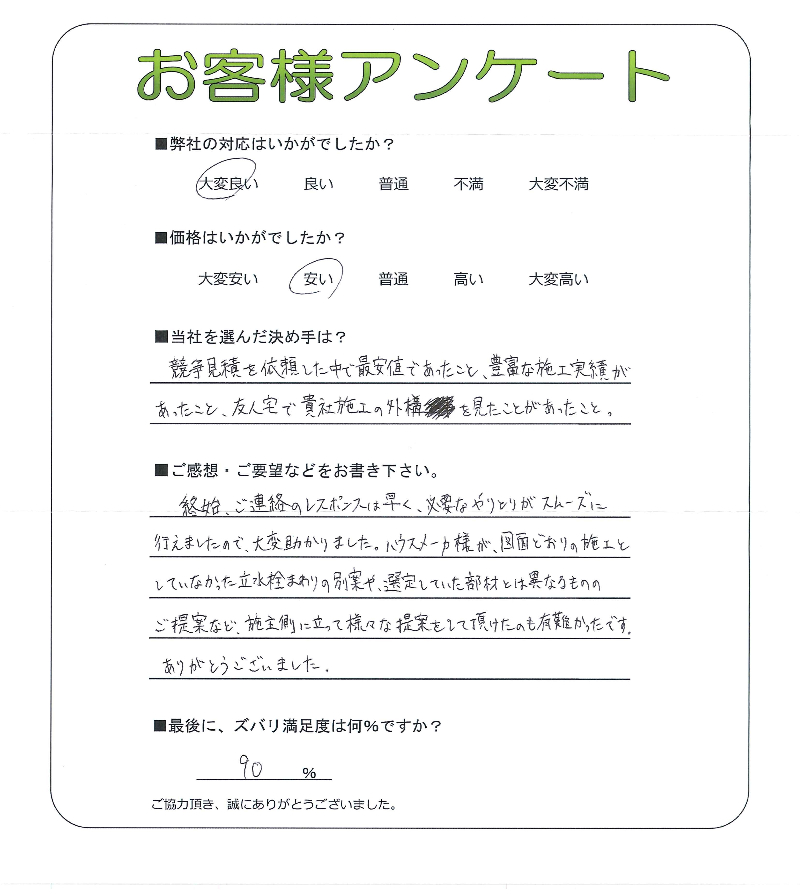 お客様アンケート
■弊社の対応はいかがでしたか？
大変良い 良い 普通 不満 大変不満
■価格はいかがでしたか？
大変安い 安い 普通 高い 大変高い
■当社を選んだ決め手は？
競争見積を依頼した中で最安値であったこと、豊富な施工実績が
あったこと、友人宅で貴社施工の外構を見たことがあったこと。
■ご感想・ご要望などをお書き下さい。
終始、ご連絡のレスポンスは早く、必要なやりとりがスムーズに
行えましたので、大変助かりました。ハウスメーカ様が、図面どおりの施工と
していなかった立水栓まわりの別案や、選定していた部材とは異なるものの
ご提案など、施主側に立って様々な提案をして頂けたのも有難かったです。
ありがとうございました。
■最後に、ズバリ満足度は何％ですか？
90 ％
ご協力頂き、誠にありがとうございました。